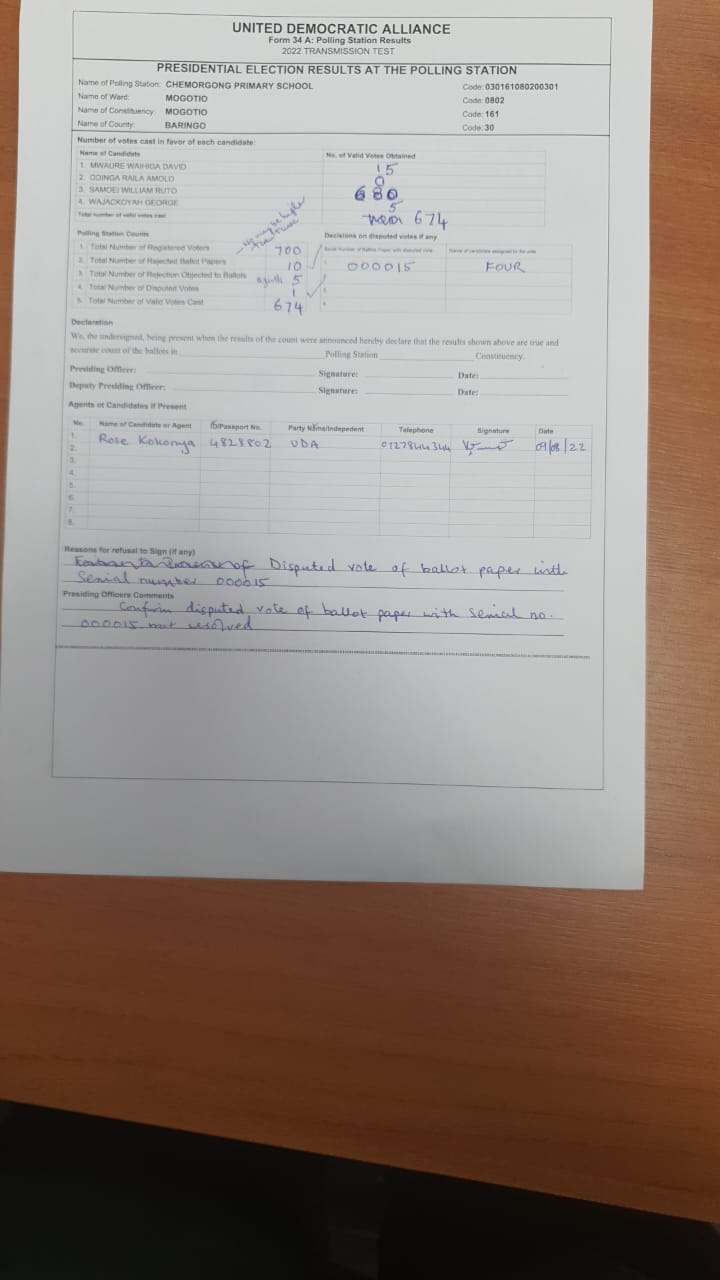 UNITED DEMOCRATIC ALLIANCE
Form 34 A: Polling Station Results
2022 TRANSMISSION TEST
PRESIDENTIAL ELECTION RESULTS AT THE POLLING STATION
Name of Polling Station: CHEMORGONG PRIMARY SCHOOL Code: 030161080200301
Name of Ward: MOGOTIO Code: 0802
Name of Constituency: MOGOTIO Code: 161
Name of County: BARINGO Code: 30
Number of votes cast in favor of each candidate:
Name of Candidate No. of Valid Votes Obtained
1. MWAURE WAIHIGA DAVID 15
2. ODINGA RAILA AMOLO 0
3. SAMOEI WILLIAM RUTO 680
4. WAJACKOYAH GEORGE 5
Total number of valid votes cast 674
Polling Station Counts Decisions on disputed votes if any
Serial Number of Ballot Paper with disputed vote Name of candidate assigned to the vote
1. Total Number of Registered Voters 700
2. Total Number of Rejected Ballot Papers 10 1. 000015 FOUR
3. Total Number of Rejection Objected to Ballots 5
4. Total Number of Disputed Votes 1
5. Total Number of Valid Votes Cast 674
Declaration
We, the undersigned, being present when the results of the count were announced hereby declare that the results shown above are true and
accurate count of the ballots in Polling Station Constituency.
Presiding Officer: Signature: Date:
Deputy Presiding Officer: Signature: Date:
Agents of Candidates if Present
No. Name of Candidate or Agent ID/Passport No. Party Name/Indepedent Telephone Signature Date
1. Rose Kokonya 4828802 UDA 0727844344 09/08/22
2.
3.
4.
5.
6.
7.
8.
Reasons for refusal to Sign (if any)
Disputed vote of ballot paper with
Serial number 000015
Presiding Officers Comments
Confirm disputed vote of ballot paper with Serial no.
000015 not resolved